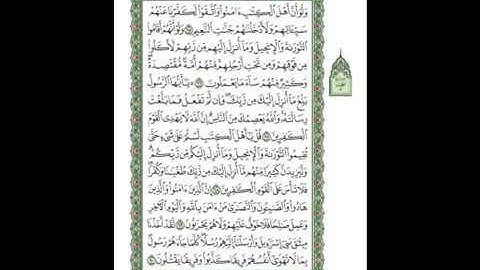 وَلَوْ أَنَّ أَهْلَ ٱلْكِتَٰبِ ءَامَنُوا۟ وَٱتَّقَوْا۟ لَكَفَّرْنَا عَنْهُمْ
سَيِّـَٔاتِهِمْ وَلَأَدْخَلْنَٰهُمْ جَنَّٰتِ ٱلنَّعِيمِ ۝ وَلَوْ أَنَّهُمْ أَقَامُوا۟
ٱلتَّوْرَىٰةَ وَٱلْإِنجِيلَ وَمَآ أُنزِلَ إِلَيْهِم مِّن رَّبِّهِمْ لَأَكَلُوا۟
مِن فَوْقِهِمْ وَمِن تَحْتِ أَرْجُلِهِم مِّنْهُمْ أُمَّةٌ مُّقْتَصِدَةٌ
وَكَثِيرٌ مِّنْهُمْ سَآءَ مَا يَعْمَلُونَ ۝ يَٰٓأَيُّهَا ٱلرَّسُولُ
بَلِّغْ مَآ أُنزِلَ إِلَيْكَ مِن رَّبِّكَ وَإِن لَّمْ تَفْعَلْ فَمَا بَلَّغْتَ
رِسَالَتَهُۥ وَٱللَّهُ يَعْصِمُكَ مِنَ ٱلنَّاسِ إِنَّ ٱللَّهَ لَا يَهْدِى ٱلْقَوْمَ
ٱلْكَٰفِرِينَ ۝ قُلْ يَٰٓأَهْلَ ٱلْكِتَٰبِ لَسْتُمْ عَلَىٰ شَىْءٍ حَتَّىٰ
تُقِيمُوا۟ ٱلتَّوْرَىٰةَ وَٱلْإِنجِيلَ وَمَآ أُنزِلَ إِلَيْكُم مِّن رَّبِّكُمْ
وَلَيَزِيدَنَّ كَثِيرًا مِّنْهُم مَّآ أُنزِلَ إِلَيْكَ مِن رَّبِّكَ طُغْيَٰنًا وَكُفْرًا
فَلَا تَأْسَ عَلَى ٱلْقَوْمِ ٱلْكَٰفِرِينَ ۝ إِنَّ ٱلَّذِينَ ءَامَنُوا۟ وَٱلَّذِينَ
هَادُوا۟ وَٱلصَّٰبِـُٔونَ وَٱلنَّصَٰرَىٰ مَنْ ءَامَنَ بِٱللَّهِ وَٱلْيَوْمِ ٱلْءَاخِرِ
وَعَمِلَ صَٰلِحًا فَلَا خَوْفٌ عَلَيْهِمْ وَلَا هُمْ يَحْزَنُونَ ۝ لَقَدْ أَخَذْنَا
مِيثَٰقَ بَنِىٓ إِسْرَٰٓءِيلَ وَأَرْسَلْنَآ إِلَيْهِمْ رُسُلًا كُلَّمَا جَآءَهُمْ رَسُولٌۢ
بِمَا لَا تَهْوَىٰٓ أَنفُسُهُمْ فَرِيقًا كَذَّبُوا۟ وَفَرِيقًا يَقْتُلُونَ ۝